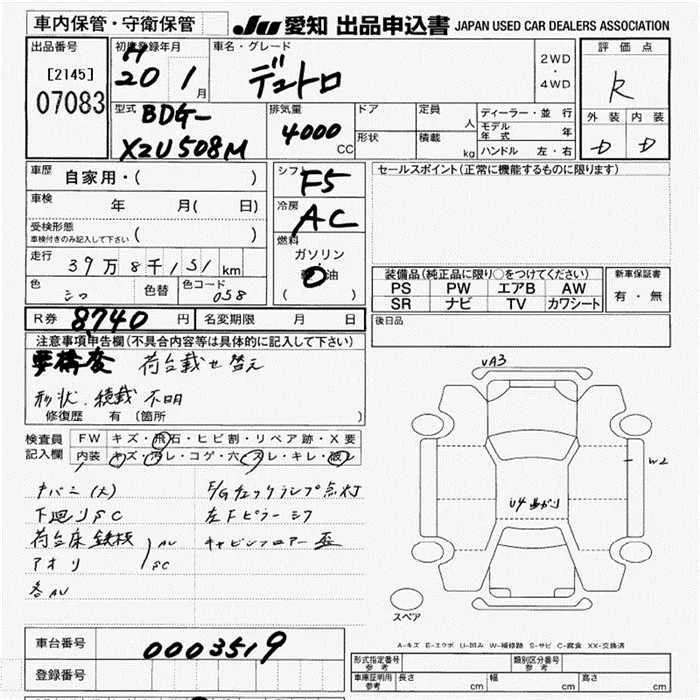 車内保管・守衛保管 JU 愛知 出品申込書 JAPAN USED CAR DEALERS ASSOCIATION
出品番号
[2145]
07083
初度登録年月
H
20 1 月
車名・グレード
デュトロ
2WD
・
4WD
評価点
R
外装 内装
D D
型式
BDG-
XZU508M
排気量
4000 CC
ドア
形状
定員 人
積載 kg
ディーラー・並行
モデル年式 年
ハンドル 左・右
車歴 自家用・( )
車検 年 月( 日)
受検形態
車検付きのみ記入して下さい ( )
走行 39万8千151km
色 シロ 色替 色コード 058
シフト F5
冷房 AC
燃料
ガソリン
油
( )
セールスポイント(正常に機能するものに限ります)
装備品(純正品に限り○をつけてください)
PS PW エアB AW
SR ナビ TV カワシート
新車保証書
有・無
R券 8740 円 名変期限 月 日
後日品
注意事項申告欄(不具合内容等は具体的に記入して下さい)
要構変 荷台載せ替え
形状、積載不明
修復歴 有 (箇所 )
検査員記入欄
FW キズ・飛石・ヒビ割・リペア跡・X要
内装 キズ・汚レ・コゲ・穴・スレ・キレ・破レ
下廻りSC
荷台床鉄板 AU
アオリ SC
各AU
F/Gチェックランプ点灯
左Fピラーシフ
キャビンフロアー歪
VA3
W2
U4 曲がり
スペア
A-キズ E-エクボ U-凹み W-補修跡 S-サビ C-腐食 XX-交換済
車台番号 0003519
登録番号
形式指定番号 参考
類別区分番号 参考
車庫証明用 参考 長さ cm 幅 cm 高さ cm